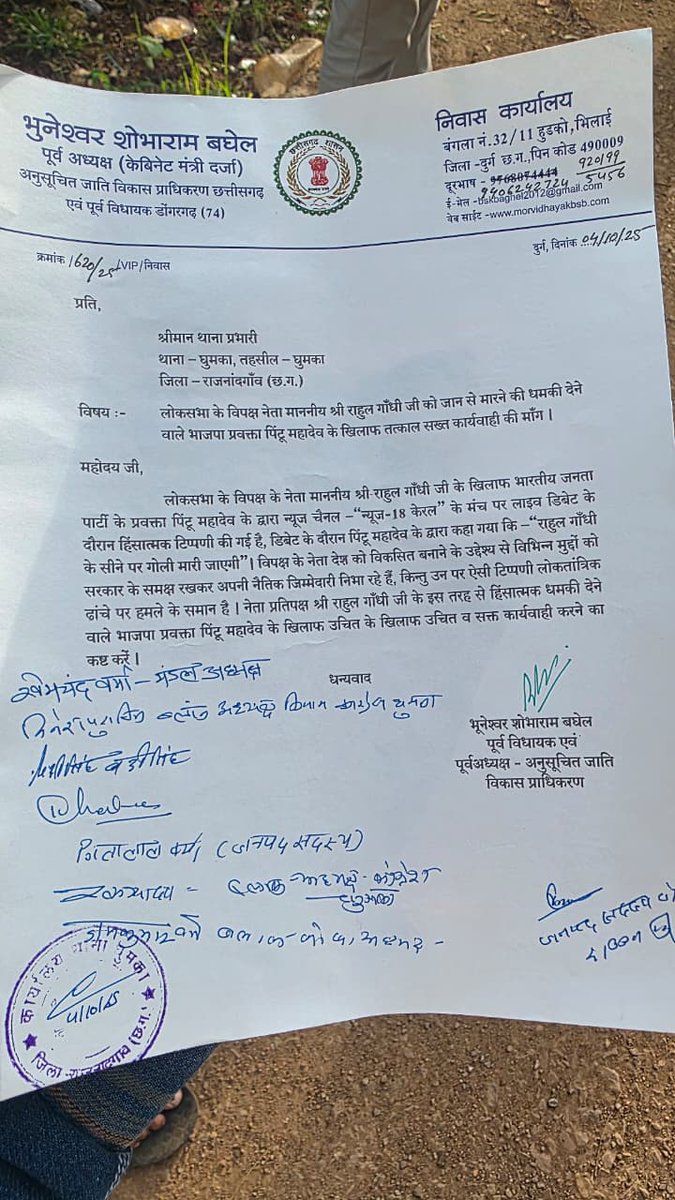 भुनेश्वर शोभाराम बघेल
पूर्व अध्यक्ष (केबिनेट मंत्री दर्जा)
अनुसूचित जाति विकास प्राधिकरण छत्तीसगढ़
एवं पूर्व विधायक डोंगरगढ़ (74)
छत्तीसगढ़ शासन
निवास कार्यालय
बंगला नं.32/11 हुडको, भिलाई
जिला-दुर्ग छ.ग.,पिन कोड 490009
दूरभाष - 92019
9406242724 5456
ई-मेल -bskbaghel2012@gmail.com
वेब साईट -www.morvidhayakbsb.com
क्रमांक /620/25/VIP/निवास
दुर्ग, दिनांक 04/10/25
प्रति,
श्रीमान थाना प्रभारी
थाना – घुमका, तहसील – घुमका
जिला – राजनांदगाँव (छ.ग.)
विषय :- लोकसभा के विपक्ष नेता माननीय श्री राहुल गाँधी जी को जान से मारने की धमकी देने
वाले भाजपा प्रवक्ता पिंटू महादेव के खिलाफ तत्काल सख्त कार्यवाही की माँग ।
महोदय जी,
लोकसभा के विपक्ष के नेता माननीय श्री राहुल गाँधी जी के खिलाफ भारतीय जनता
पार्टी के प्रवक्ता पिंटू महादेव के द्वारा न्यूज चैनल –“न्यूज-18 केरल” के मंच पर लाइव डिबेट के
दौरान हिंसात्मक टिप्पणी की गई है, डिबेट के दौरान पिंटू महादेव के द्वारा कहा गया कि –“राहुल गाँधी
के सीने पर गोली मारी जाएगी”। विपक्ष के नेता देश को विकसित बनाने के उद्देश्य से विभिन्न मुद्दों को
सरकार के समक्ष रखकर अपनी नैतिक जिम्मेवारी निभा रहे हैं, किन्तु उन पर ऐसी टिप्पणी लोकतांत्रिक
ढांचे पर हमले के समान है । नेता प्रतिपक्ष श्री राहुल गाँधी जी के इस तरह से हिंसात्मक धमकी देने
वाले भाजपा प्रवक्ता पिंटू महादेव के खिलाफ उचित के खिलाफ उचित व सक्त कार्यवाही करने का
कष्ट करें ।
धन्यवाद
खेमचंद वर्मा – मंडल अध्यक्ष
भूनेश्वर शोभाराम बघेल
पूर्व विधायक एवं
पूर्वअध्यक्ष - अनुसूचित जाति
विकास प्राधिकरण
वर्मा (जनपद सदस्य)
जनपद सदस्य
कार्यालय थाना घुमका
4/10/25
जिला-राजनांदगांव (छ.ग.)